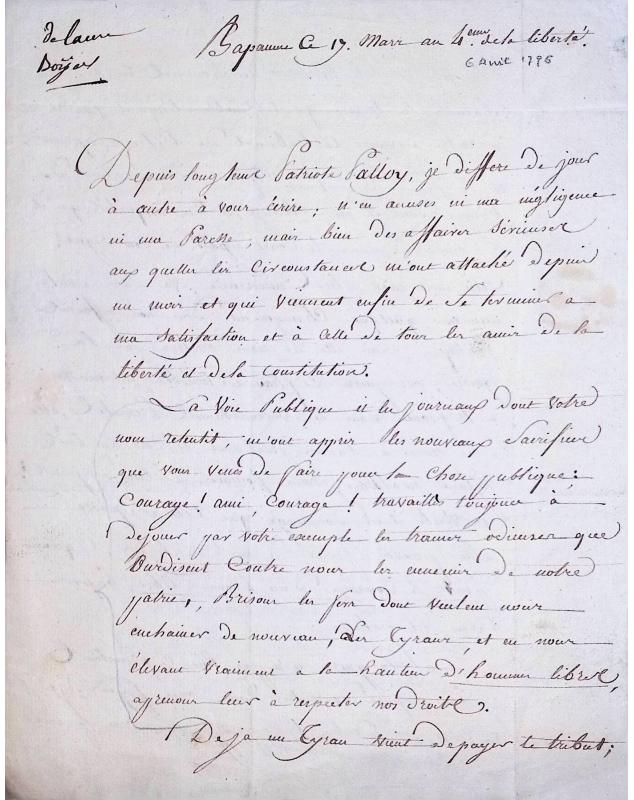 Bapaume Ce 17. Mars an 4.eme de la liberté.
6 Avril 1795
Depuis longtems Patriote Palloy, je differe de jour
à autre à vous écrire; n'en accuses ni ma négligence
ni ma Paresse, mais bien des affaires Sérieuses
aux quelles les Circonstances m'ont attaché depuis
un mois et qui viennent enfin de Se terminer a
ma Satisfaction et à Celle de tous les amis de la
liberté et dela Constitution.
La Voie Publique et les journaux dont votre
nom retentit, m'ont appris les nouveaux Sacrifices
que vous venés de faire pour la Chose publique:
Courage! ami, Courage! travailles toujours à
dejouer par votre exemple les trames odieuses que
Ourdisent Contre nous les ennemis de notre
patrie, Brisons les fers dont veulent nous
enchainer de nouveau, Les Tyrans, et en nous
élevant vraiment a la hauteur d'hommes libres,
aprenons leur à respecter nos droits.
Deja un Tyran vient depayer le tribut;